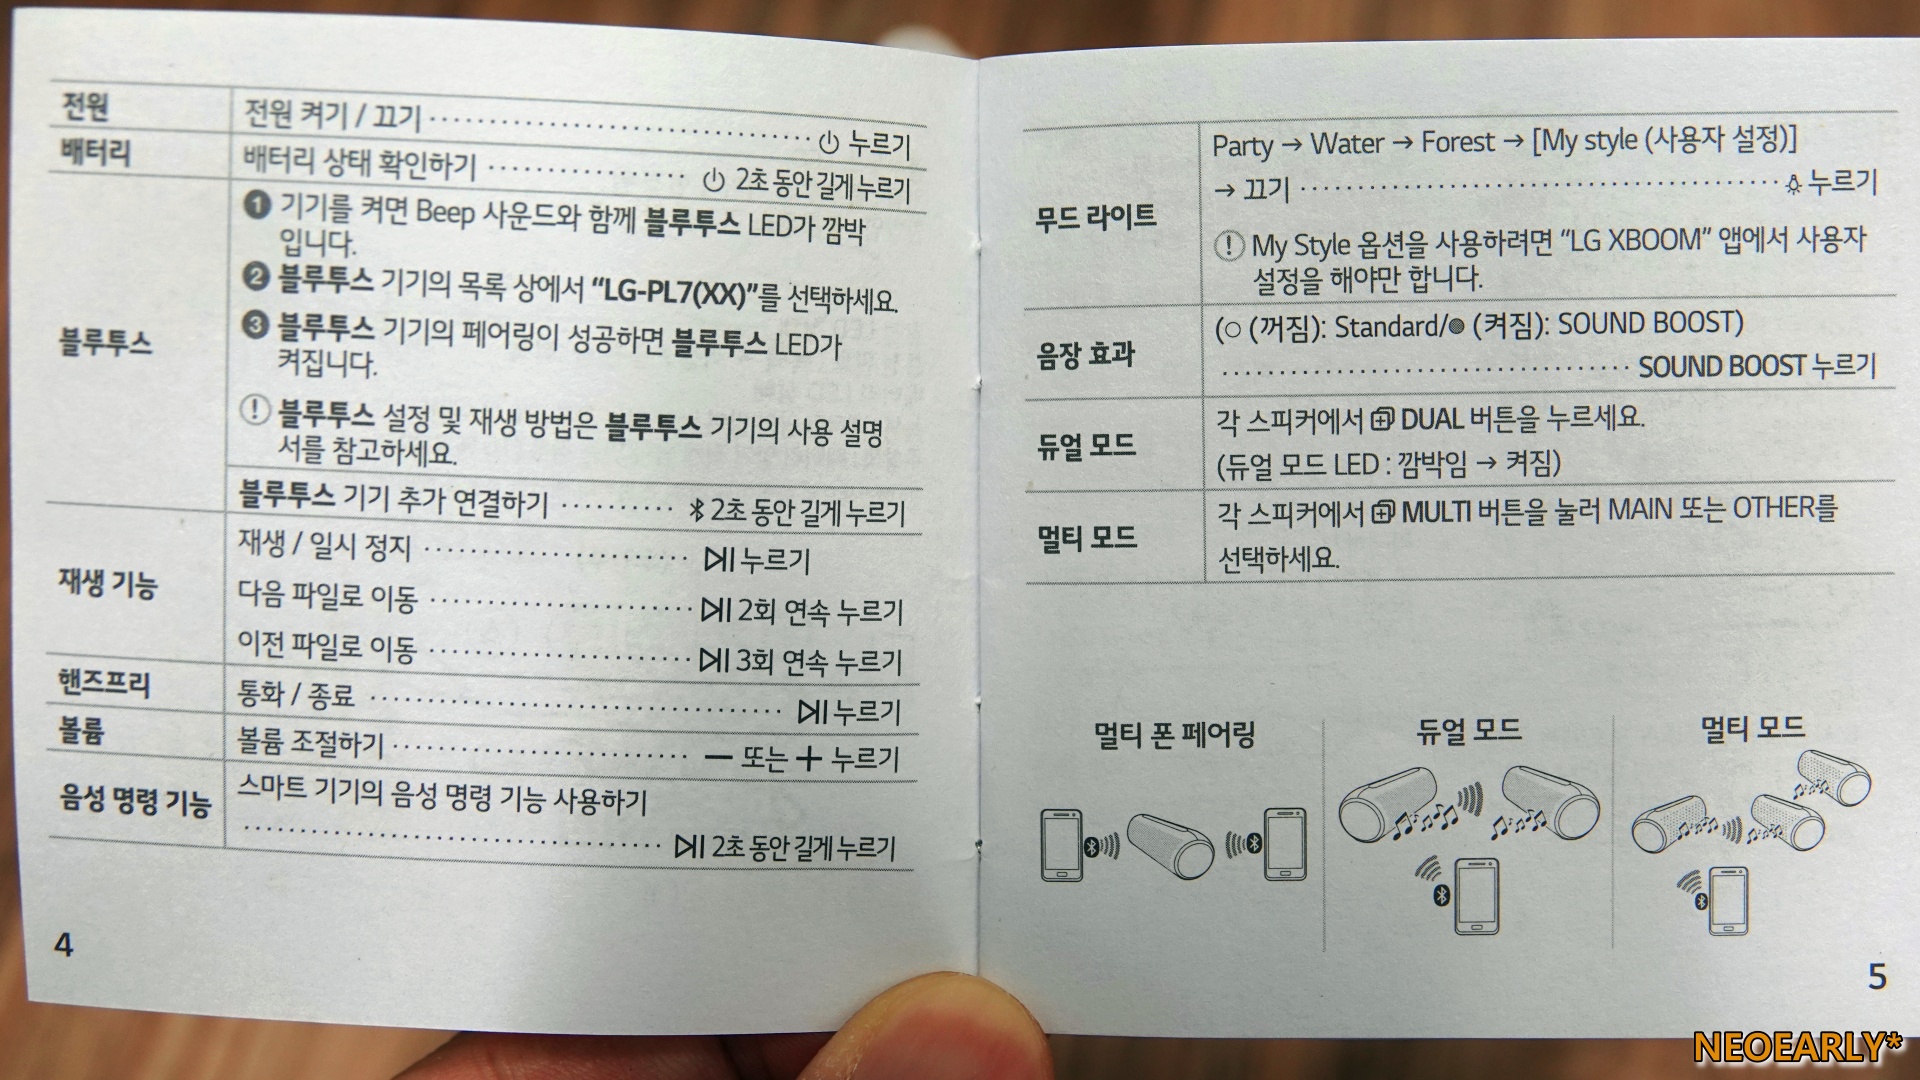 전원
전원 켜기 / 끄기 ⏻ 누르기
배터리
배터리 상태 확인하기 ⏻ 2초 동안 길게 누르기
블루투스
❶ 기기를 켜면 Beep 사운드와 함께 블루투스 LED가 깜박
입니다.
❷ 블루투스 기기의 목록 상에서 “LG-PL7(XX)”를 선택하세요.
❸ 블루투스 기기의 페어링이 성공하면 블루투스 LED가
켜집니다.
! 블루투스 설정 및 재생 방법은 블루투스 기기의 사용 설명
서를 참고하세요.
블루투스 기기 추가 연결하기 2초 동안 길게 누르기
재생 기능
재생 / 일시 정지 누르기
다음 파일로 이동 2회 연속 누르기
이전 파일로 이동 3회 연속 누르기
핸즈프리
통화 / 종료 누르기
볼륨
볼륨 조절하기 − 또는 + 누르기
음성 명령 기능
스마트 기기의 음성 명령 기능 사용하기
2초 동안 길게 누르기
4
무드 라이트
Party → Water → Forest → [My style (사용자 설정)]
→ 끄기 누르기
! My Style 옵션을 사용하려면 “LG XBOOM” 앱에서 사용자
설정을 해야만 합니다.
음장 효과
(○ (꺼짐): Standard/● (켜짐): SOUND BOOST)
SOUND BOOST 누르기
듀얼 모드
각 스피커에서 DUAL 버튼을 누르세요.
(듀얼 모드 LED : 깜박임 → 켜짐)
멀티 모드
각 스피커에서 MULTI 버튼을 눌러 MAIN 또는 OTHER를
선택하세요.
멀티 폰 페어링
듀얼 모드
멀티 모드
5
NEOEARLY*